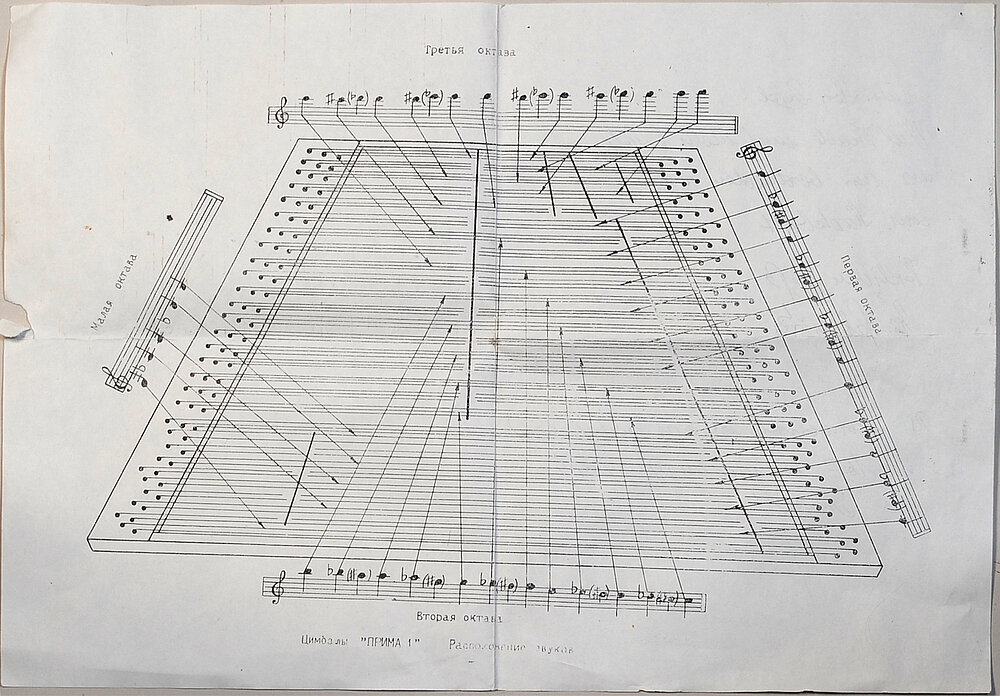 Третья октава
Малая октава
Первая октава
Вторая октава
Цимбалы "ПРИМА 1" Расположение звуков